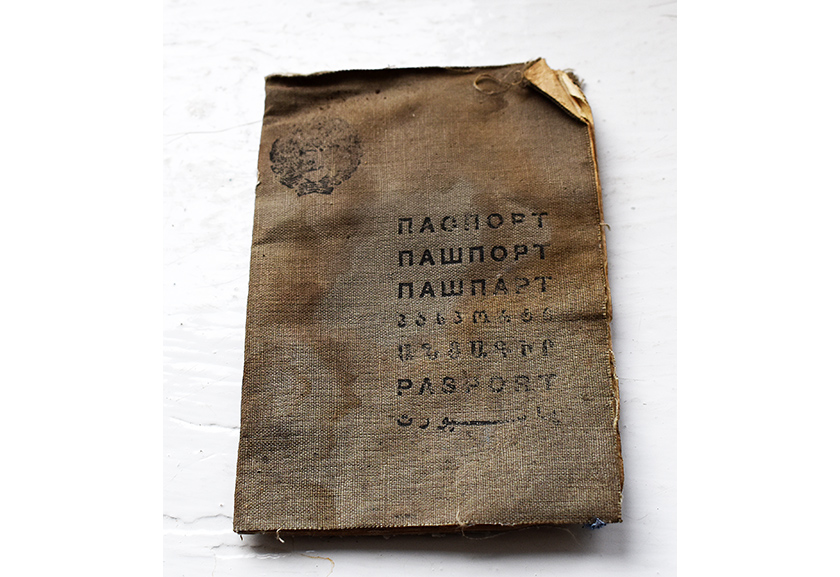 ПАСПОРТ
ПАШПОРТ
ПАШПАРТ
პასპორტი
ԱՆՁԱԳԻՐ
PASPORT
پاسپورت